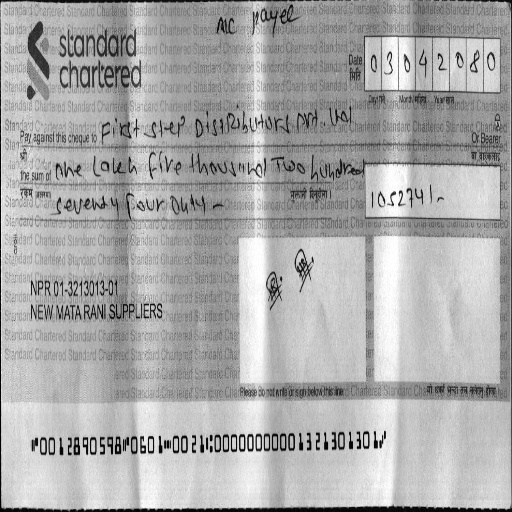 A/C payee
standard
chartered
Date 03042080
मिति
Day/गते Month/महिना Year/साल
Pay against this cheque to First step Distributors pvt. ltd
Or Bearer
श्री
वा वाहकलाई
the sum of one Lakh five thousand Two hundred
रकम अक्षरमा
seventy four only -
105274/-
NPR 01-3213013-01
NEW MATA RANI SUPPLIERS
Please do not write or sign below this line
⑈0012890598⑈0601⑉0021⑆00000000001321301301⑇